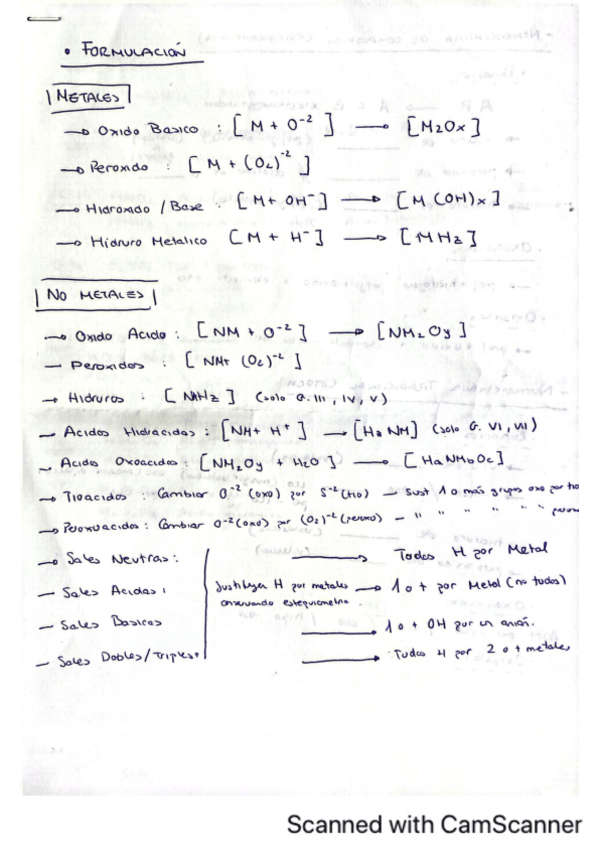 • FORMULACIÓN
METALES
→ Oxido Basico : [ M + O⁻² ] → [M2Ox]
→ Peroxido : [ M + (O2)⁻² ]
→ Hidroxido / Base : [ M+ OH⁻ ] → [ M (OH)x ]
→ Hidruro Metalico [ M + H⁻ ] → [ MHz ]
NO METALES
→ Oxido Acido : [ NM + O⁻² ] → [ NM2 Oy ]
→ Peroxidos : [ NM+ (O2)⁻² ]
→ Hidruros : [ NMHz ] (solo G. III, IV, V)
— Acidos Hidracidos : [ NM+ H⁺ ] → [Ha NM] (solo G. VI, VII)
→ Acido Oxoacidos : [NM2Oy + H2O ] → [ HaNMbOc]
→ Tioacidos : Cambiar O⁻² (oxo) por S⁻² (tio) — Sust 1 o más grupos oxo por tio
→ Peroxoacidos : Cambiar O⁻² (oxo) por (O2)⁻² (peroxo) — " " " " "
→ Sales Neutras : → Todos H por Metal
— Sales Acidas : Sustituyen H por metales → 1 o + por Metal (no todos)
conservando estequiometria
— Sales Basicas → 1 o + OH por un anión.
— Sales Dobles/Triples+ → Todos H por 2 o + metales
Scanned with CamScanner